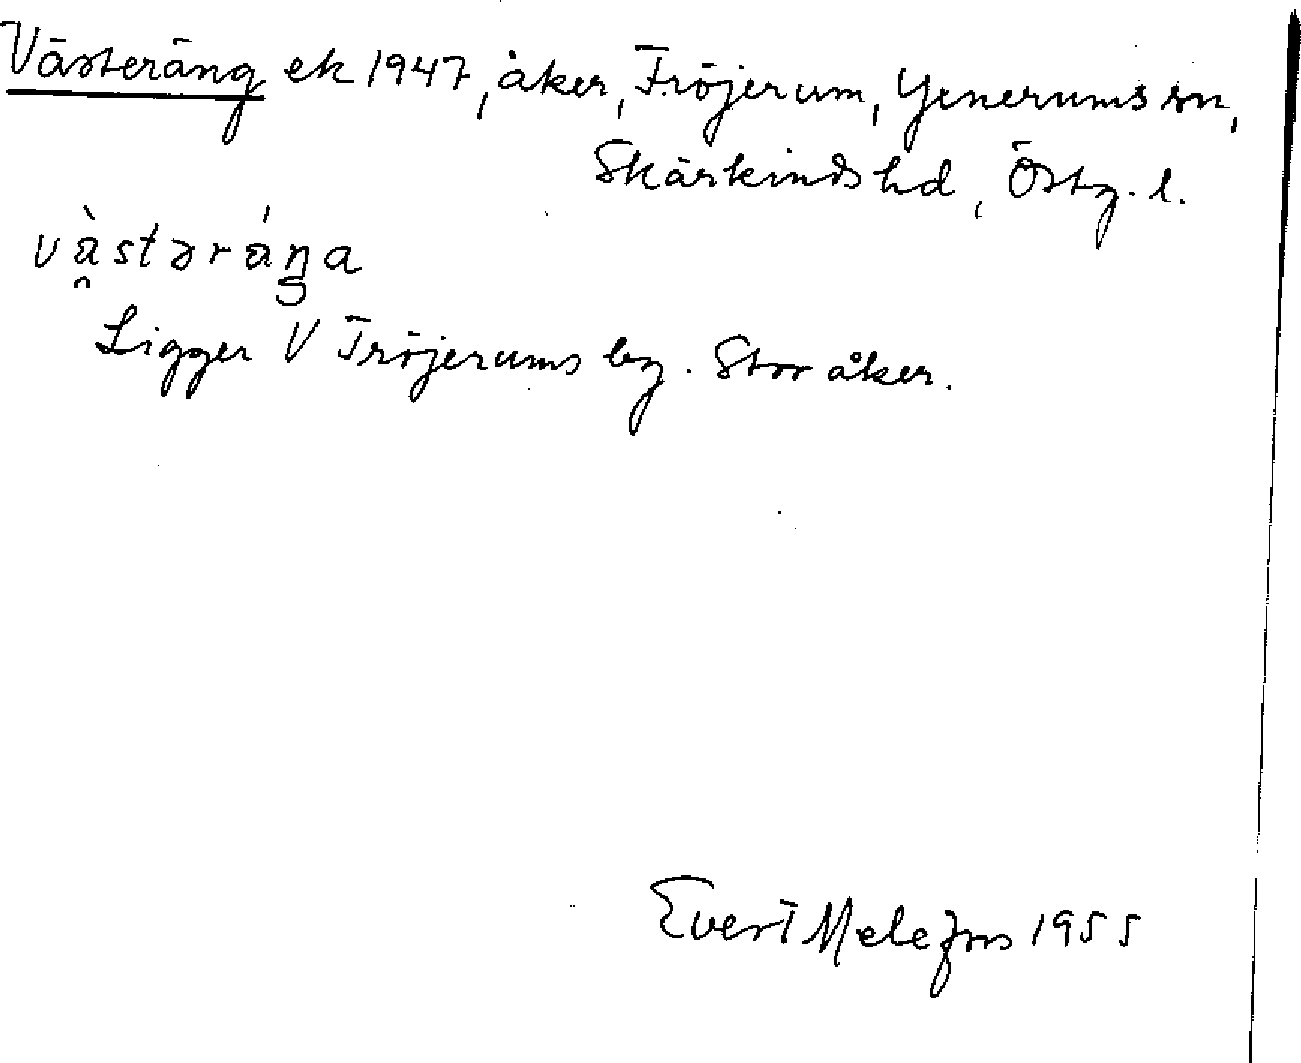 Västeräng ek 1947, åker, Fröjerum, Yxnerums sn,
Skärkinds hd, Östg. l.
vàstəráŋa
Ligger V Fröjerums by. Stor åker.
Evert Melefors 1955